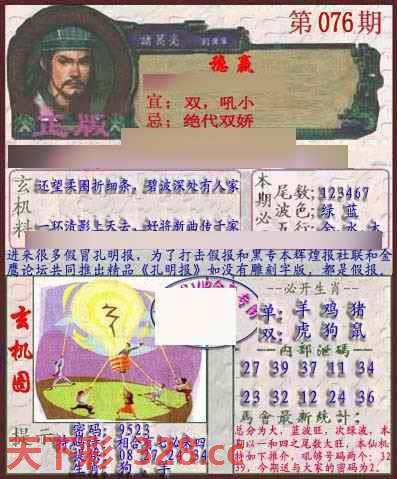 第076期
諸葛亮
稳赢
宜：双，吼小
忌：绝代双娇
正版
玄机料
还望柔围折细条，碧波深处有人家
一环清影上天去，好将新曲传千家
本期必
尾数：123467
波色：绿 蓝
五行：金 水 木
进来很多假冒孔明报，为了打击假报和黑专本辉煌报社联和金
鹰论坛共同推出精品《孔明报》如没有雕刻字版，都是假报。
玄机图
--必开生肖--
单：羊 鸡 猪
双：虎 狗 鼠
--内部泄码--
27 39 37 11 34
23 32 12 24 36
馬會最新統計：
总分为大，蓝波旺，次绿波，本
期以一和四之尾数大旺，本仙机
持如下推介，吼够号码两个：32
39，今期送与大家的密码为2。
提示
密码：9523
相合有七必大四
提供：08 37 24 34
生肖：狗 羊
天下彩 328.cc